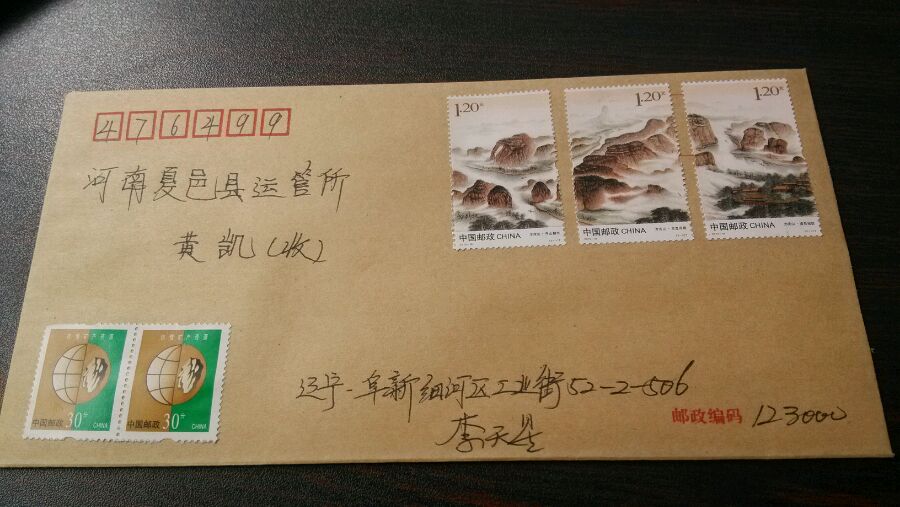 476499
河南夏邑县运管所
黄凯(收)
1.20元
中国邮政 CHINA
1.20元
中国邮政 CHINA
1.20元
中国邮政 CHINA
珍惜矿产资源
中国邮政 30分 CHINA
珍惜矿产资源
中国邮政 30分 CHINA
辽宁-阜新细河区工业街52-2-506
李天星
邮政编码 123000